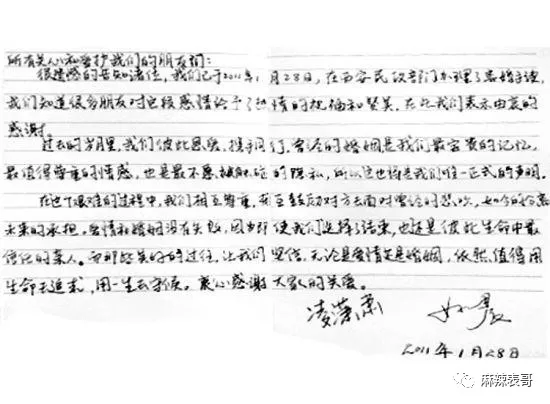 所有关心和爱护我们的朋友们：
很遗憾的告知诸位，我们已于2011年1月28日，在西安民政部门办理了离婚手续，
我们知道很多朋友对这段感情给予了热情的祝福和赞美，在此我们表示由衷的
感谢。
过去的岁月里，我们彼此恩爱，携手同行，曾经的婚姻是我们最宝贵的记忆，
最值得尊重的情感，也是最不愿被触碰的隐私，所以这也将是我们唯一正式的声明。
在这个艰难的过程中，我们相互尊重，互鼓励对方去面对曾经的悲欢，如今的分离
未来的承担。爱情和婚姻没有失败，因为即使我们选择了结束，也还是彼此生命中最
信任的亲人。而那些美好的过往，让我们坚信，无论是爱情还是婚姻，依然值得用
生命去追求，用一生去守候。衷心感谢大家的关爱。
凌潇肃 姚晨
2011年1月28日
麻辣表哥